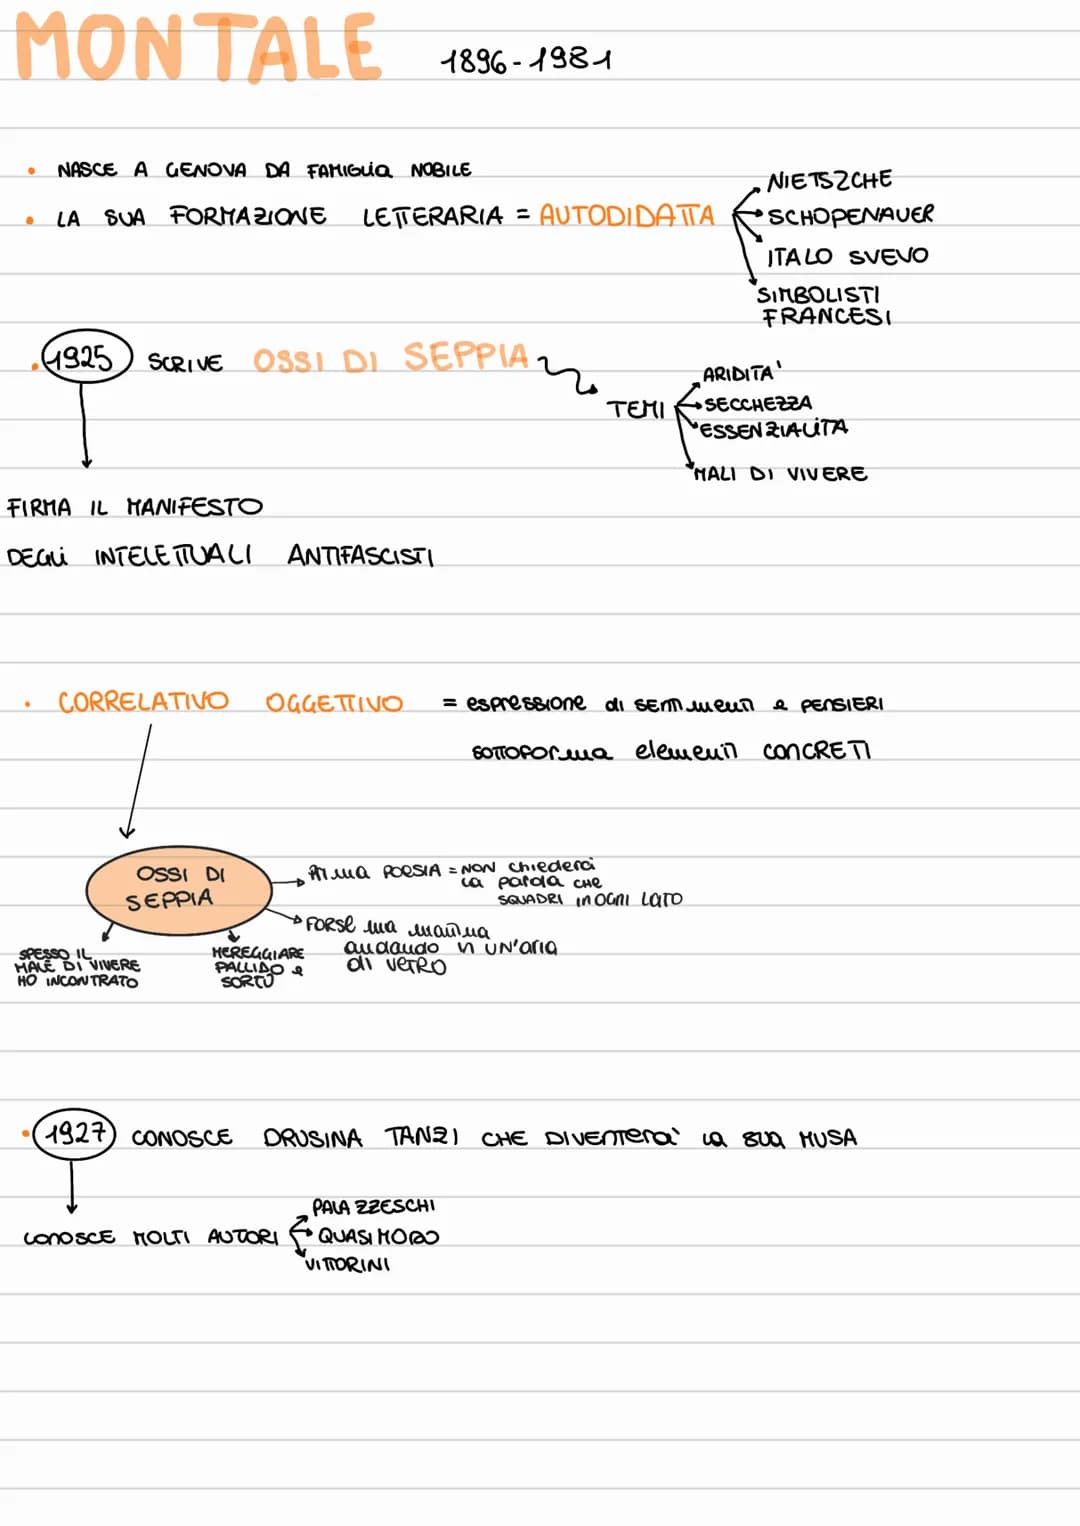 MONTALE 1896-1981
• NASCE A GENOVA DA FAMIGLIA NOBILE
• LA SUA FORMAZIONE LETTERARIA = AUTODIDATTA
NIETSZCHE
SCHOPENAUER
ITALO SVEVO
SIMBOLISTI
FRANCESI
• 1925 SCRIVE OSSI DI SEPPIA
TEMI
ARIDITA'
SECCHEZZA
ESSENZIALITA
MALI DI VIVERE
FIRMA IL MANIFESTO
DEGLI INTELETTUALI ANTIFASCISTI
• CORRELATIVO OGGETTIVO = espressione di sentimenti e PENSIERI
SOTTOFORma elementi CONCRETI
OSSI DI
SEPPIA
Prima POESIA = NON chiederci
la parola CHE
SQUADRI in OGNI LATO
FORSE una mattina
andando in UN'aria
di VETRO
SPESSO IL
MALE DI VIVERE
HO INCONTRATO
MEREGGIARE
PALLIDO e
SORTO
• 1927 CONOSCE DRUSINA TANZI CHE DIVENTERA' LA SUA MUSA
CONOSCE MOLTI AUTORI
PALAZZESCHI
QUASIMODO
VITTORINI